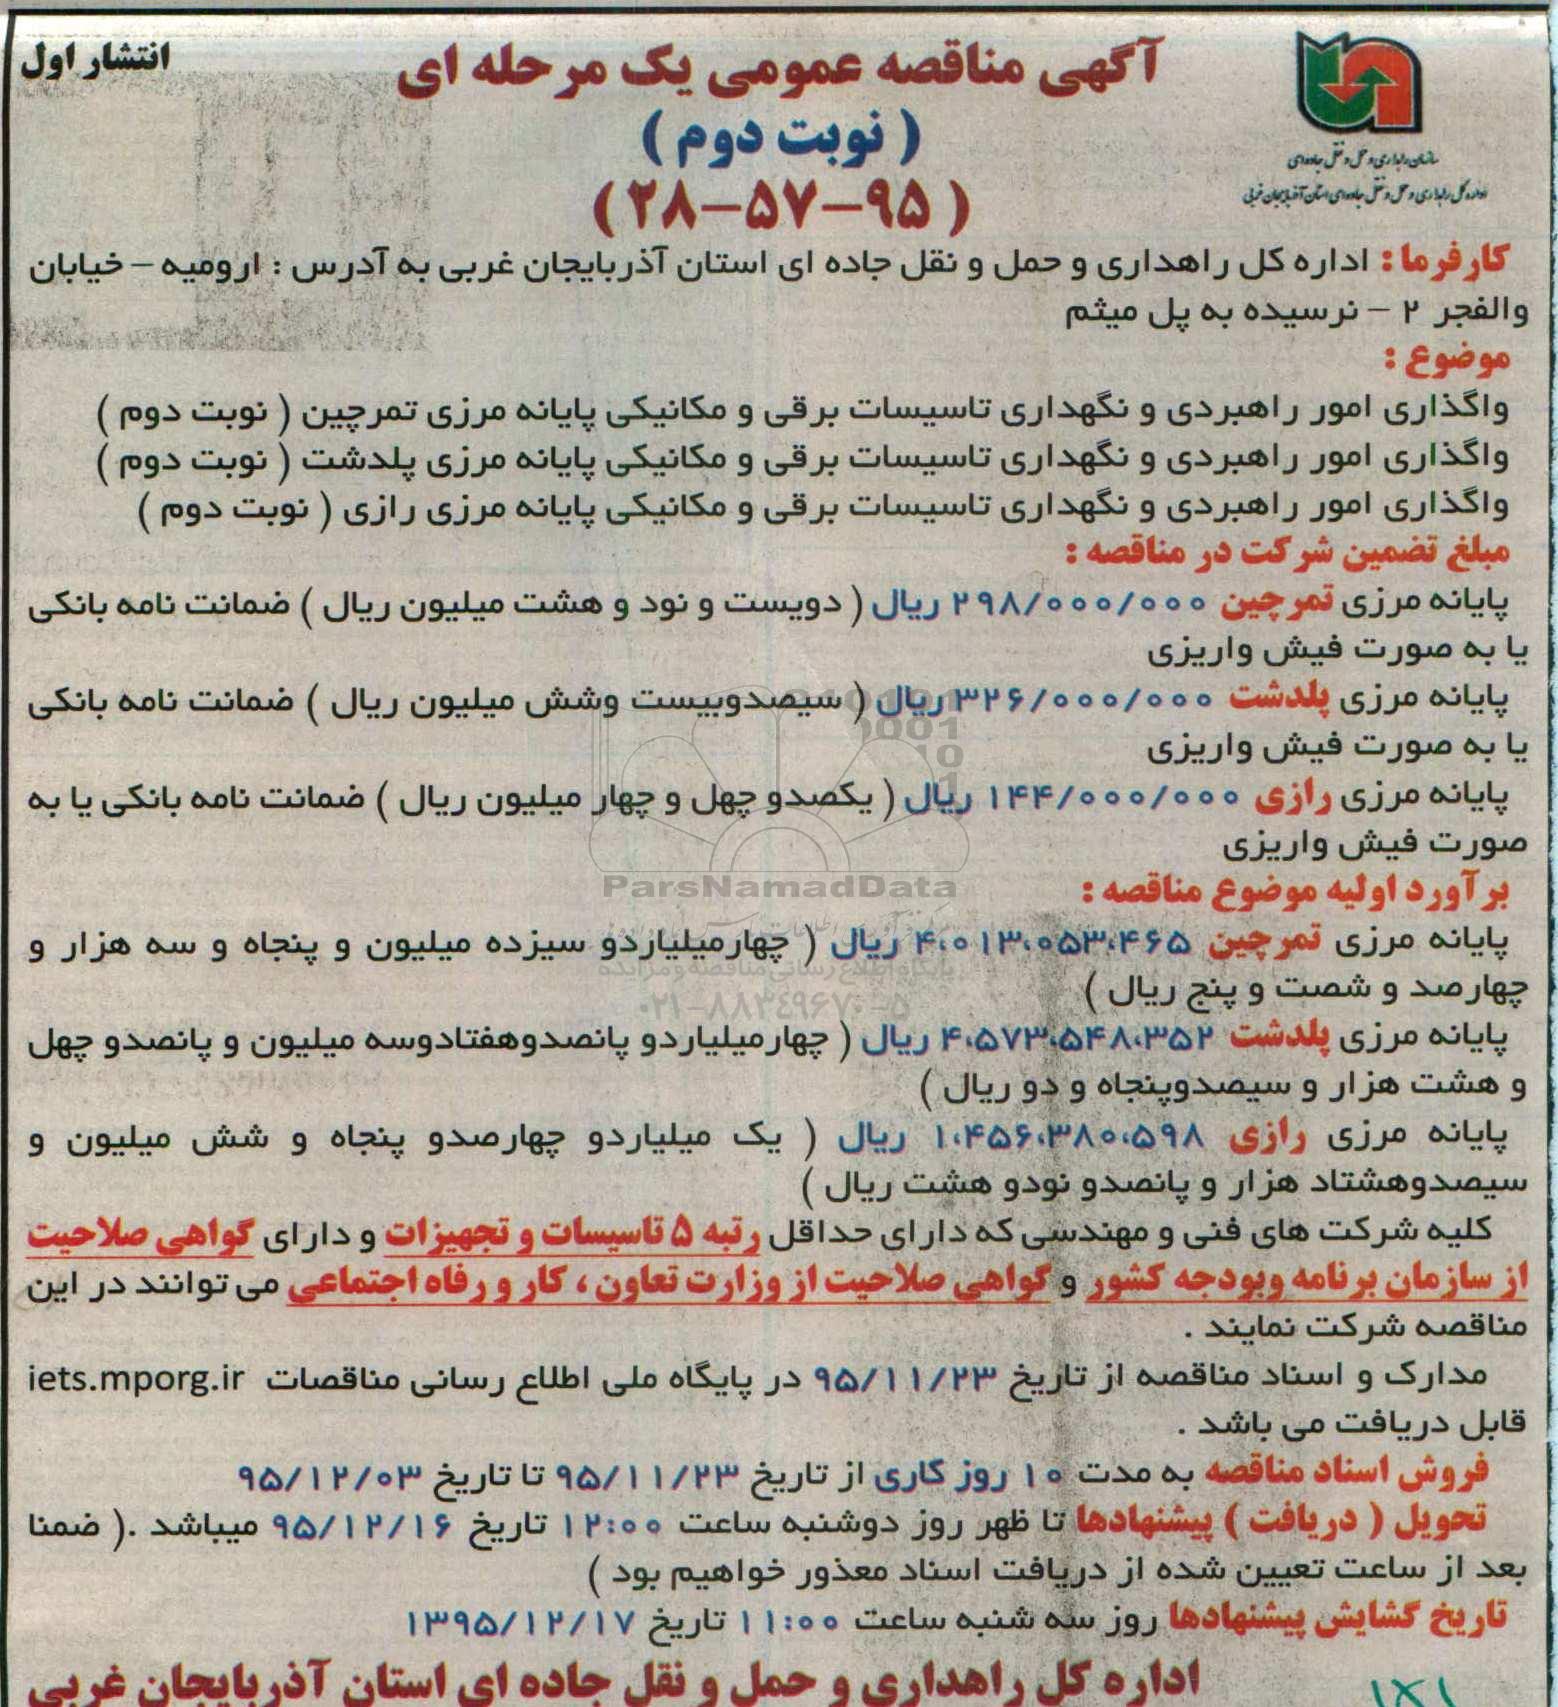 انتشار اول
آگهی مناقصه عمومی یک مرحله ای
( نوبت دوم )
( ۹۵–۵۷–۲۸ )
سازمان راهداری و حمل و نقل جاده‌ای
اداره کل راهداری و حمل و نقل جاده‌ای استان آذربایجان غربی
کارفرما : اداره کل راهداری و حمل و نقل جاده ای استان آذربایجان غربی به آدرس : ارومیه – خیابان
والفجر ۲ – نرسیده به پل میثم
موضوع :
واگذاری امور راهبردی و نگهداری تاسیسات برقی و مکانیکی پایانه مرزی تمرچین ( نوبت دوم )
واگذاری امور راهبردی و نگهداری تاسیسات برقی و مکانیکی پایانه مرزی پلدشت ( نوبت دوم )
واگذاری امور راهبردی و نگهداری تاسیسات برقی و مکانیکی پایانه مرزی رازی ( نوبت دوم )
مبلغ تضمین شرکت در مناقصه :
پایانه مرزی تمرچین ۲۹۸/۰۰۰/۰۰۰ ریال ( دویست و نود و هشت میلیون ریال ) ضمانت نامه بانکی
یا به صورت فیش واریزی
پایانه مرزی پلدشت ۳۲۶/۰۰۰/۰۰۰ ریال ( سیصدوبیست وشش میلیون ریال ) ضمانت نامه بانکی
یا به صورت فیش واریزی
پایانه مرزی رازی ۱۴۴/۰۰۰/۰۰۰ ریال ( یکصدو چهل و چهار میلیون ریال ) ضمانت نامه بانکی یا به
صورت فیش واریزی
ParsNamadData
برآورد اولیه موضوع مناقصه :
پایانه مرزی تمرچین ۴،۰۱۳،۰۵۳،۴۶۵ ریال ( چهارمیلیاردو سیزده میلیون و پنجاه و سه هزار و
پایگاه اطلاع رسانی مناقصه و مزایده
چهارصد و شصت و پنج ریال )
۰۲۱–۸۸۳٤۹۶۷۰–۵
پایانه مرزی پلدشت ۴،۵۷۳،۵۴۸،۳۵۲ ریال ( چهارمیلیاردو پانصدوهفتادوسه میلیون و پانصدو چهل
و هشت هزار و سیصدوپنجاه و دو ریال )
پایانه مرزی رازی ۱،۴۵۶،۳۸۰،۵۹۸ ریال ( یک میلیاردو چهارصدو پنجاه و شش میلیون و
سیصدوهشتاد هزار و پانصدو نودو هشت ریال )
کلیه شرکت های فنی و مهندسی که دارای حداقل رتبه ۵ تاسیسات و تجهیزات و دارای گواهی صلاحیت
از سازمان برنامه وبودجه کشور و گواهی صلاحیت از وزارت تعاون ، کار و رفاه اجتماعی می توانند در این
مناقصه شرکت نمایند .
مدارک و اسناد مناقصه از تاریخ ۹۵/۱۱/۲۳ در پایگاه ملی اطلاع رسانی مناقصات iets.mporg.ir
قابل دریافت می باشد .
فروش اسناد مناقصه به مدت ۱۰ روز کاری از تاریخ ۹۵/۱۱/۲۳ تا تاریخ ۹۵/۱۲/۰۳
تحویل ( دریافت ) پیشنهادها تا ظهر روز دوشنبه ساعت ۱۲:۰۰ تاریخ ۹۵/۱۲/۱۶ میباشد .( ضمنا
بعد از ساعت تعیین شده از دریافت اسناد معذور خواهیم بود )
تاریخ گشایش پیشنهادها روز سه شنبه ساعت ۱۱:۰۰ تاریخ ۱۳۹۵/۱۲/۱۷
اداره کل راهداری و حمل و نقل جاده ای استان آذربایجان غربی